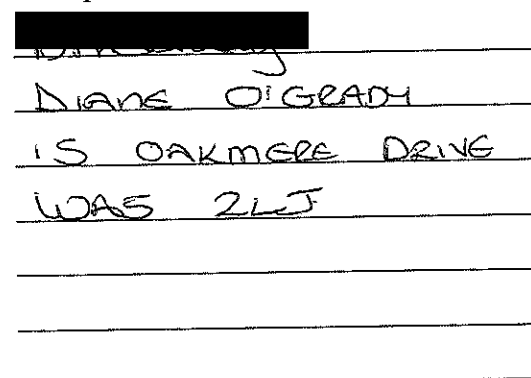 DIANE O'GRADY
15 OAKMERE DRIVE
WA5 2LJ